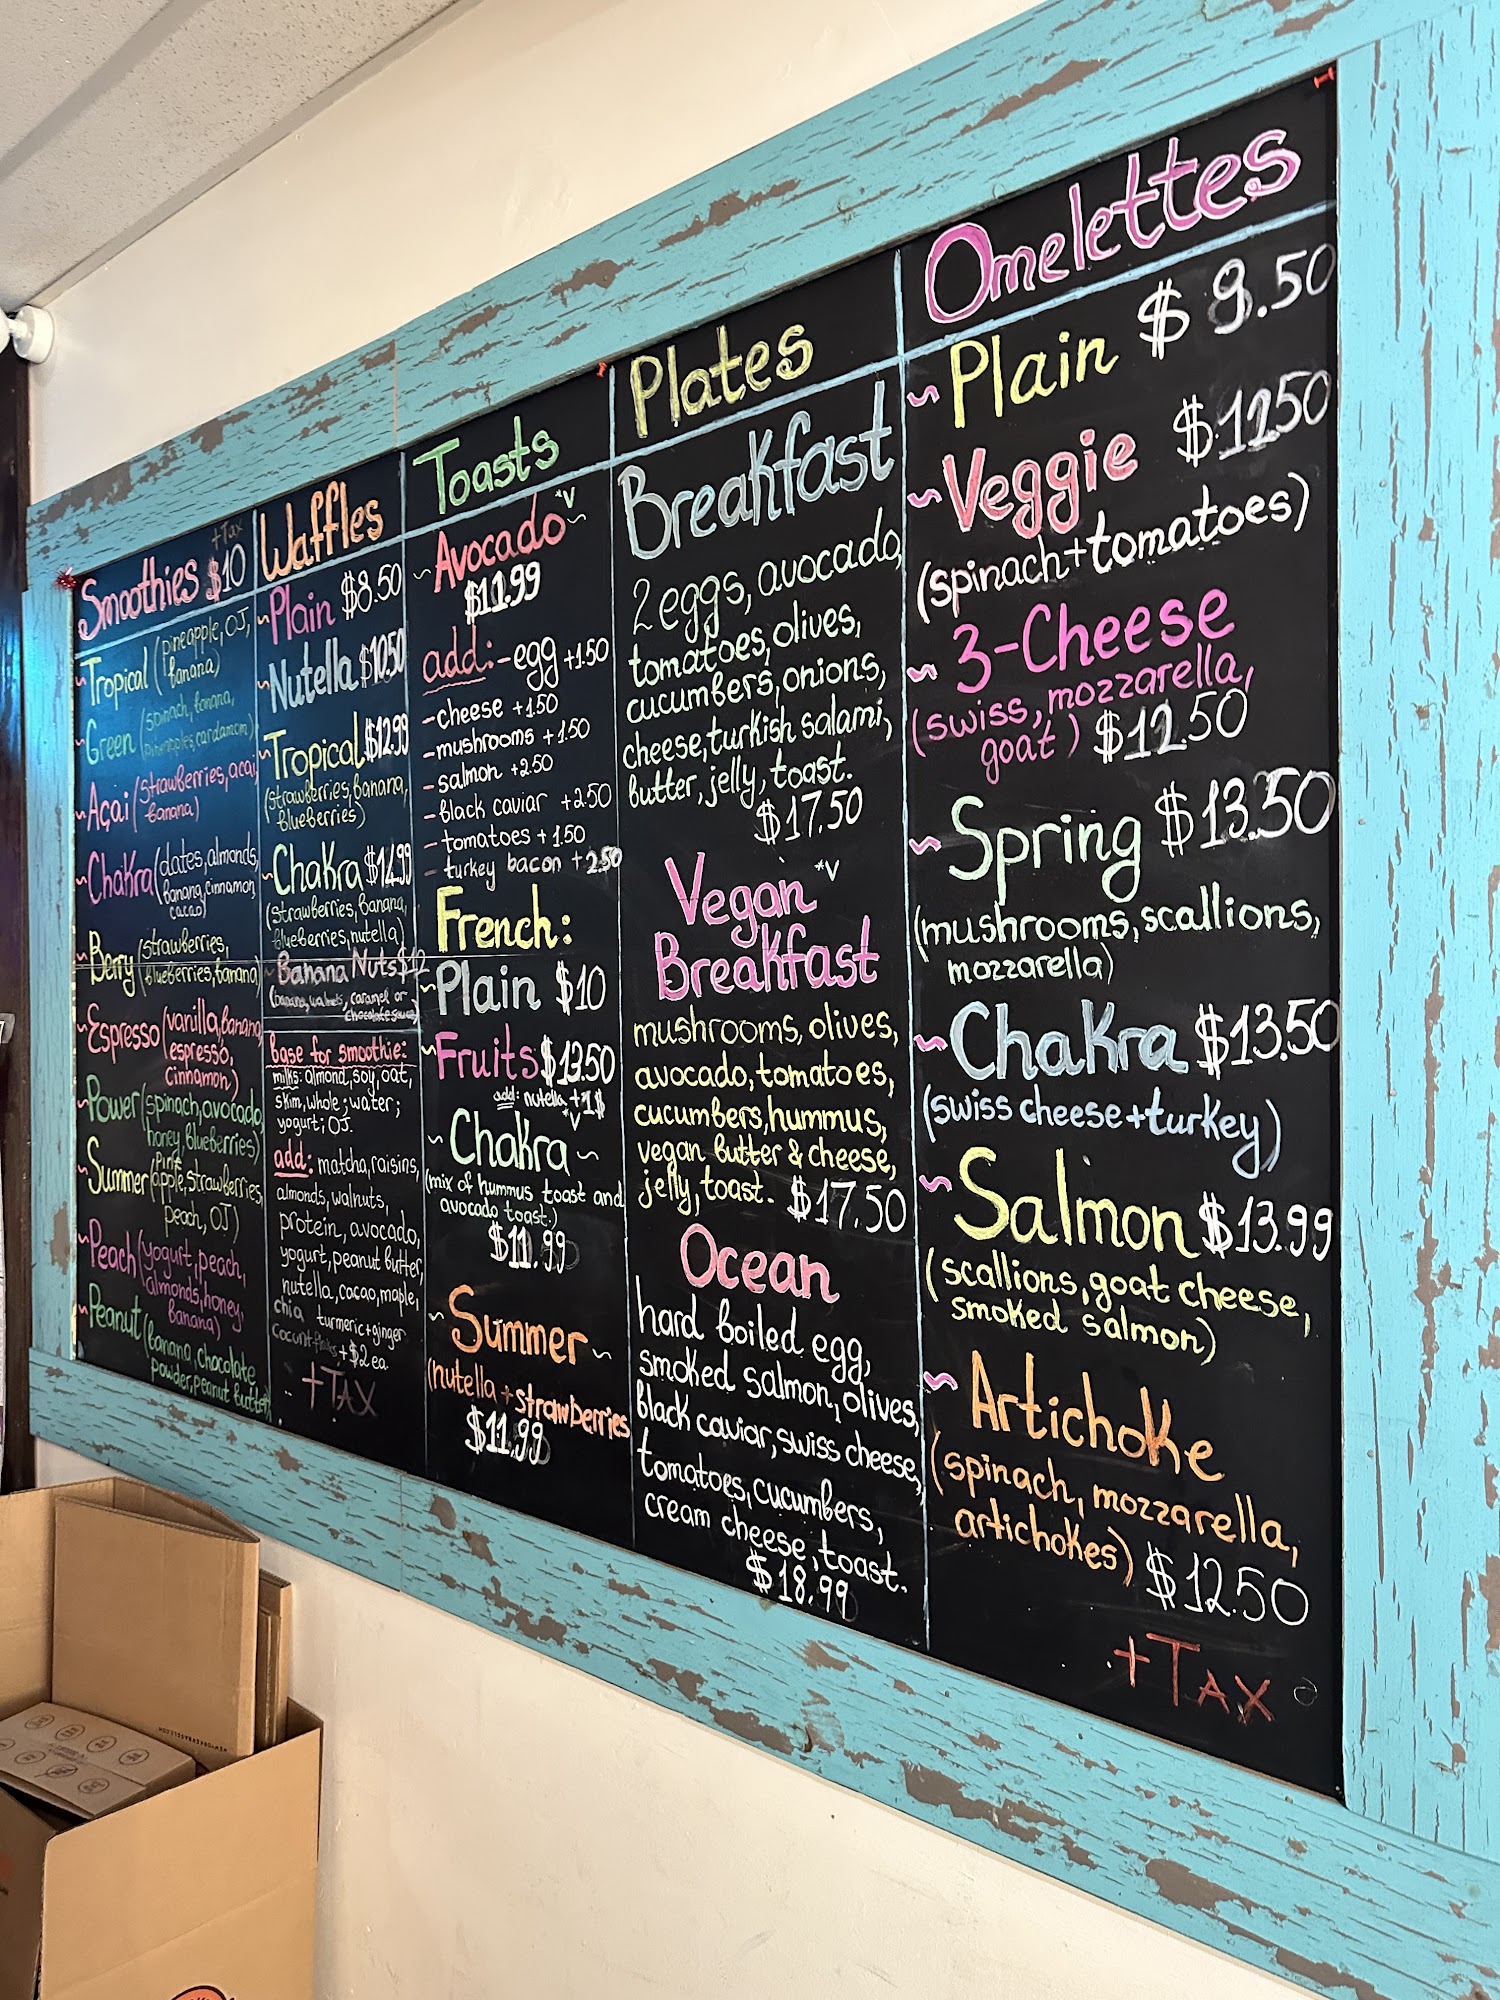 Smoothies $10
+Tax
~Tropical (pineapple, OJ,
banana)
~Green (spinach, banana,
pineapple, cardamom)
~Açai (strawberries, acai,
banana)
~Chakra (dates, almonds,
banana, cinnamon,
cacao)
~Berry (strawberries,
blueberries, banana)
~Espresso (vanilla, banana,
espresso,
cinnamon)
~Power (spinach, avocado,
honey, blueberries)
~Summer (pineapple, strawberries,
peach, OJ)
~Peach (yogurt, peach,
almonds, honey,
banana)
~Peanut (banana, chocolate
powder, peanut butter)
Waffles
~Plain $8.50
~Nutella $10.50
~Tropical $12.99
(strawberries, banana,
blueberries)
~Chakra $14.99
(strawberries, banana,
blueberries, nutella)
~Banana Nuts $12
(banana, walnuts, caramel or
chocolate sauce)
base for smoothie:
milks: almond, soy, oat,
skim, whole; water;
yogurt; OJ.
add: matcha, raisins,
almonds, walnuts,
protein, avocado,
yogurt, peanut butter,
nutella, cacao, maple,
chia turmeric+ginger
coconut flakes, +$2 ea.
+TAX
Toasts
~Avocado~ *V
$11.99
add: -egg +1.50
-cheese +1.50
-mushrooms +1.50
-salmon +2.50
-black caviar +2.50
-tomatoes +1.50
- turkey bacon +2.50
French:
~Plain $10
~Fruits $13.50
add: nutella +1$
~Chakra~ *V
(mix of hummus toast and
avocado toast.)
$11.99
~Summer~
(nutella + strawberries
$11.99
Plates
Breakfast
2 eggs, avocado,
tomatoes, olives,
cucumbers, onions,
cheese, turkish salami,
butter, jelly, toast.
$17.50
Vegan *V
Breakfast
mushrooms, olives,
avocado, tomatoes,
cucumbers, hummus,
vegan butter & cheese,
jelly, toast. $17.50
Ocean
hard boiled egg,
smoked salmon, olives,
black caviar, swiss cheese,
tomatoes, cucumbers,
cream cheese, toast.
$18.99
Omelettes
~Plain $9.50
~Veggie $12.50
(spinach+tomatoes)
~3-Cheese
(swiss, mozzarella,
goat) $12.50
~Spring $13.50
(mushrooms, scallions,
mozzarella)
~Chakra $13.50
(swiss cheese+turkey)
~Salmon $13.99
(scallions, goat cheese,
smoked salmon)
~Artichoke
(spinach, mozzarella,
artichokes) $12.50
+TAX